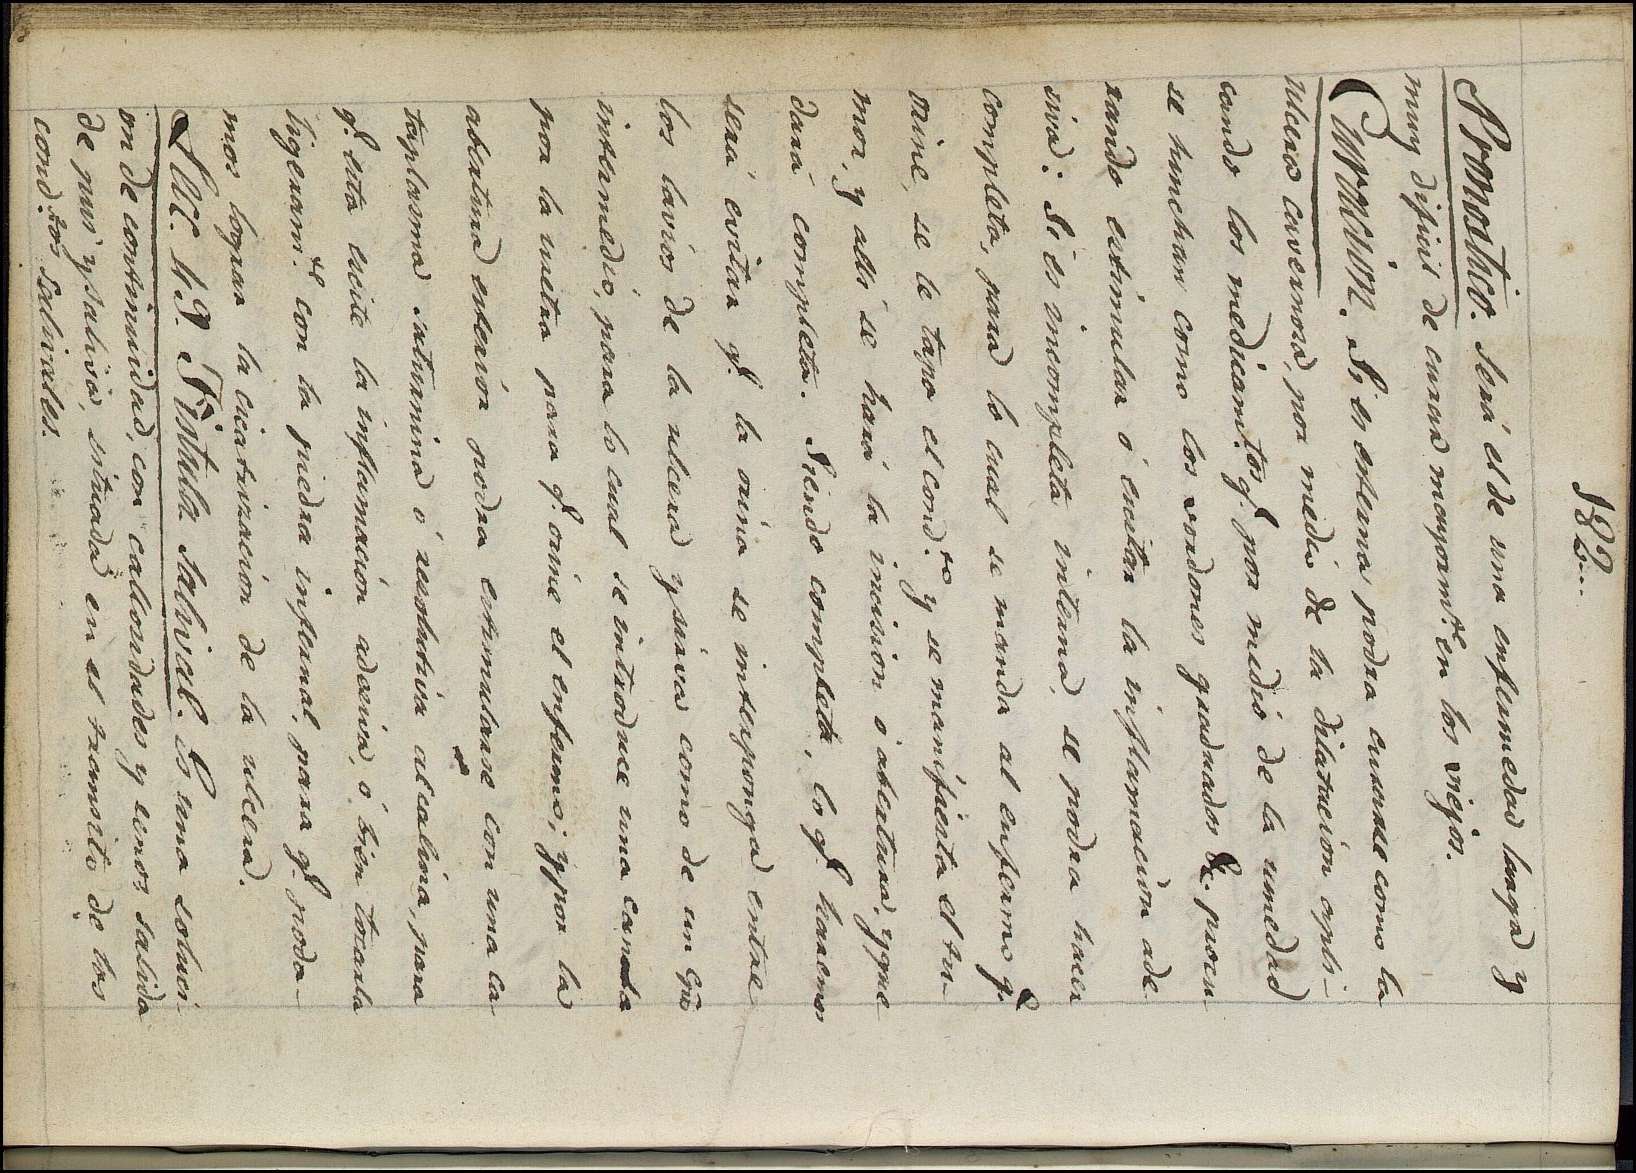 122..
Pronostico. Será el de una enfermedad larga y
muy dificil de curar mayorm.te en los viejos.
Curacion. Si es externa podra curarse como la
ulcera cavernosa, por medio de la dilatacion apli-
cando los medicam.tos q.e por medio de la umedad
se hinchan como los cordones graduados &c. procu-
rando estimular ó exitar la inflamacion ade-
siva. Si es incompleta interna, se podra hacer
completa, para lo cual se manda al enfermo q.e
orine, se le tapa el cond.to y se manifiesta el tu-
mor, y alli se hará la incision ó abertura, y que-
dará completa. Siendo completa, lo q.e haremos
será evitar q.e la orina se interponga entre
los lavios de la ulcera y sirva como de un Cpõ
intermedio, para lo cual se introduce una canula
por la uretra para q.e orine el enfermo; y por la
abertura exterior podra estimularse con una ca-
taplasma saturnina ó resolutiva alcalina, para
q.e esta exite la inflamacion adesiva, ó bien tocarla
ligeram.te con la piedra infernal, para q.e poda-
mos lograr la cicatrizacion de la ulcera.
Lecc. 49. Fistula Salival. Es una soluci-
on de continuidad, con callosidades y senos, salida
de pus y saliva, situada en el transito de los
cond.tos Salivales.